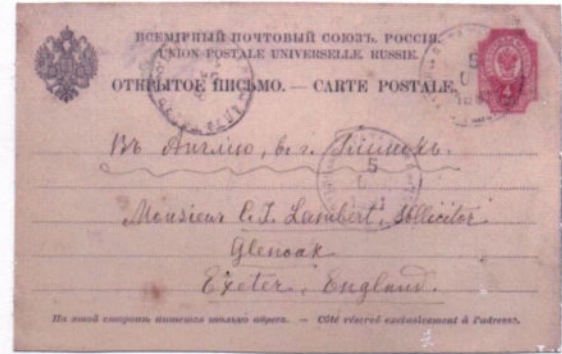 ВСЕМІРНЫЙ ПОЧТОВЫЙ СОЮЗЪ. РОССІЯ.
UNION POSTALE UNIVERSELLE. RUSSIE.
ОТКРЫТОЕ ПИСЬМО. — CARTE POSTALE.
4
5
Въ Англію, в. г.
5
Monsieur C. J. Lambert, Sollicitor
Glenoak
Exeter, England.
На этой сторонѣ пишется только адресъ. — Côté réservé exclusivement à l'adresse.